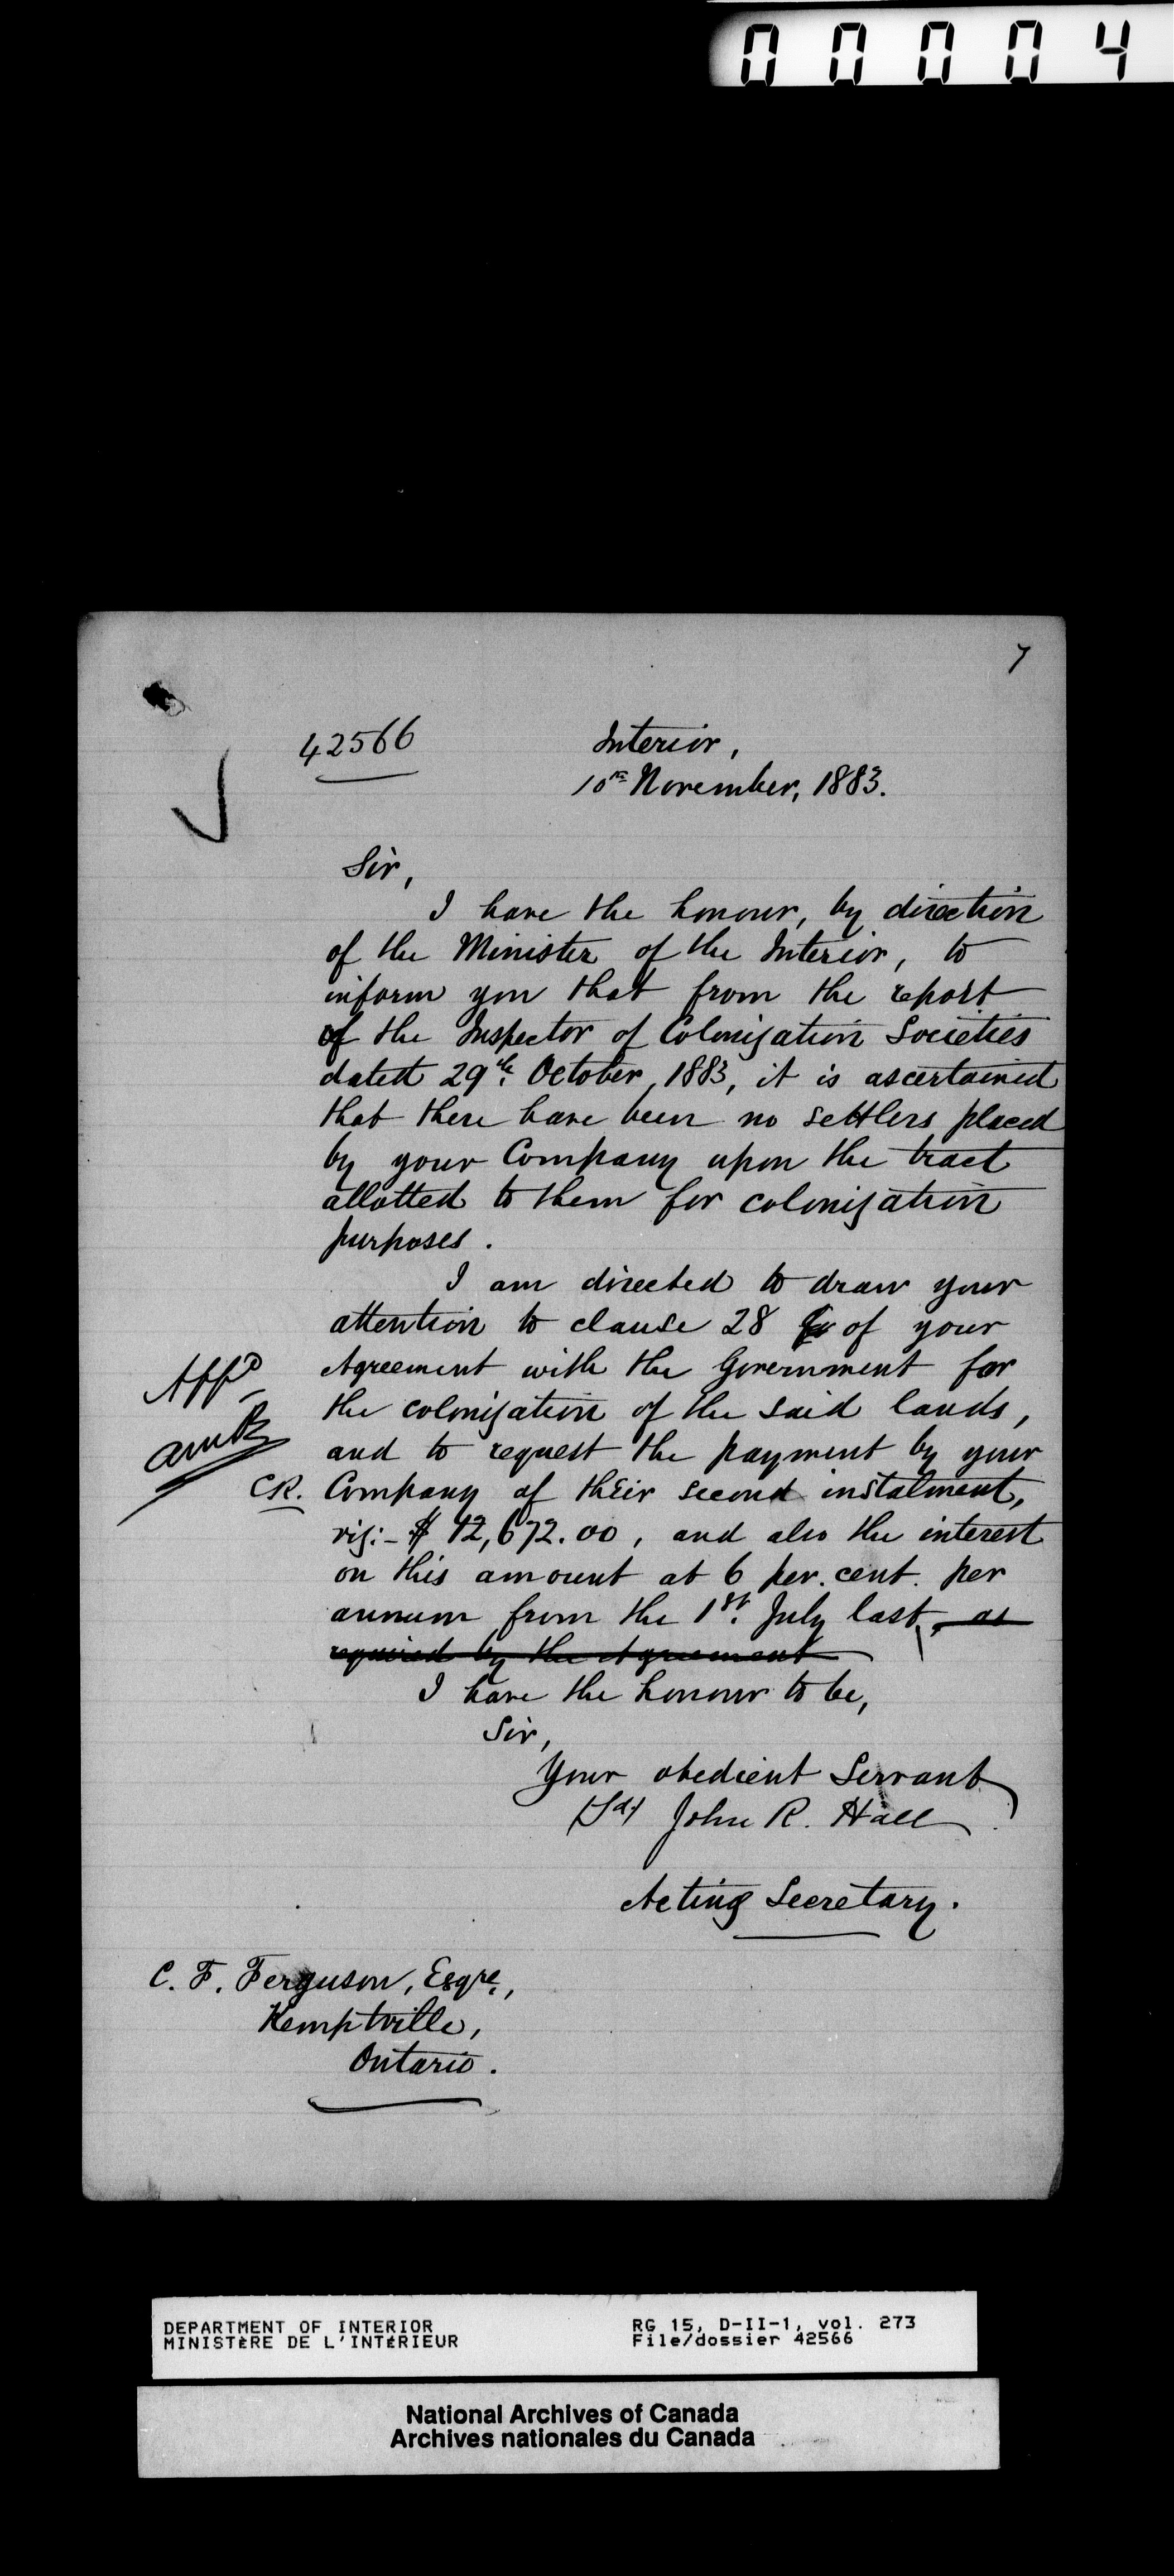 00004
7
42566
Interior,
10th November, 1883.
Sir,
I have the honour, by direction
of the Minister of the Interior, to
inform you that from the report
of the Inspector of Colonization Societies
dated 29th. October, 1883, it is ascertained
that there have been no settlers placed
by your Company upon the tract
allotted to them for colonization
purposes.
I am directed to draw your
attention to clause 28 of your
Agreement with the Government for
the colonization of the said lands,
and to request the payment by your
Company of their second instalment,
viz:- $12,672.00, and also the interest
on this amount at 6 per. cent. per
annum from the 1st. July last, as
required by the Agreement
I have the honour to be,
Sir,
Your obedient Servant
(Sd) John R. Hall
Acting Secretary.
Appd
CR.
C. F. Ferguson, Esqre.,
Kemptville,
Ontario.
DEPARTMENT OF INTERIOR
MINISTÈRE DE L'INTÉRIEUR
RG 15, D-II-1, vol. 273
File/dossier 42566
National Archives of Canada
Archives nationales du Canada